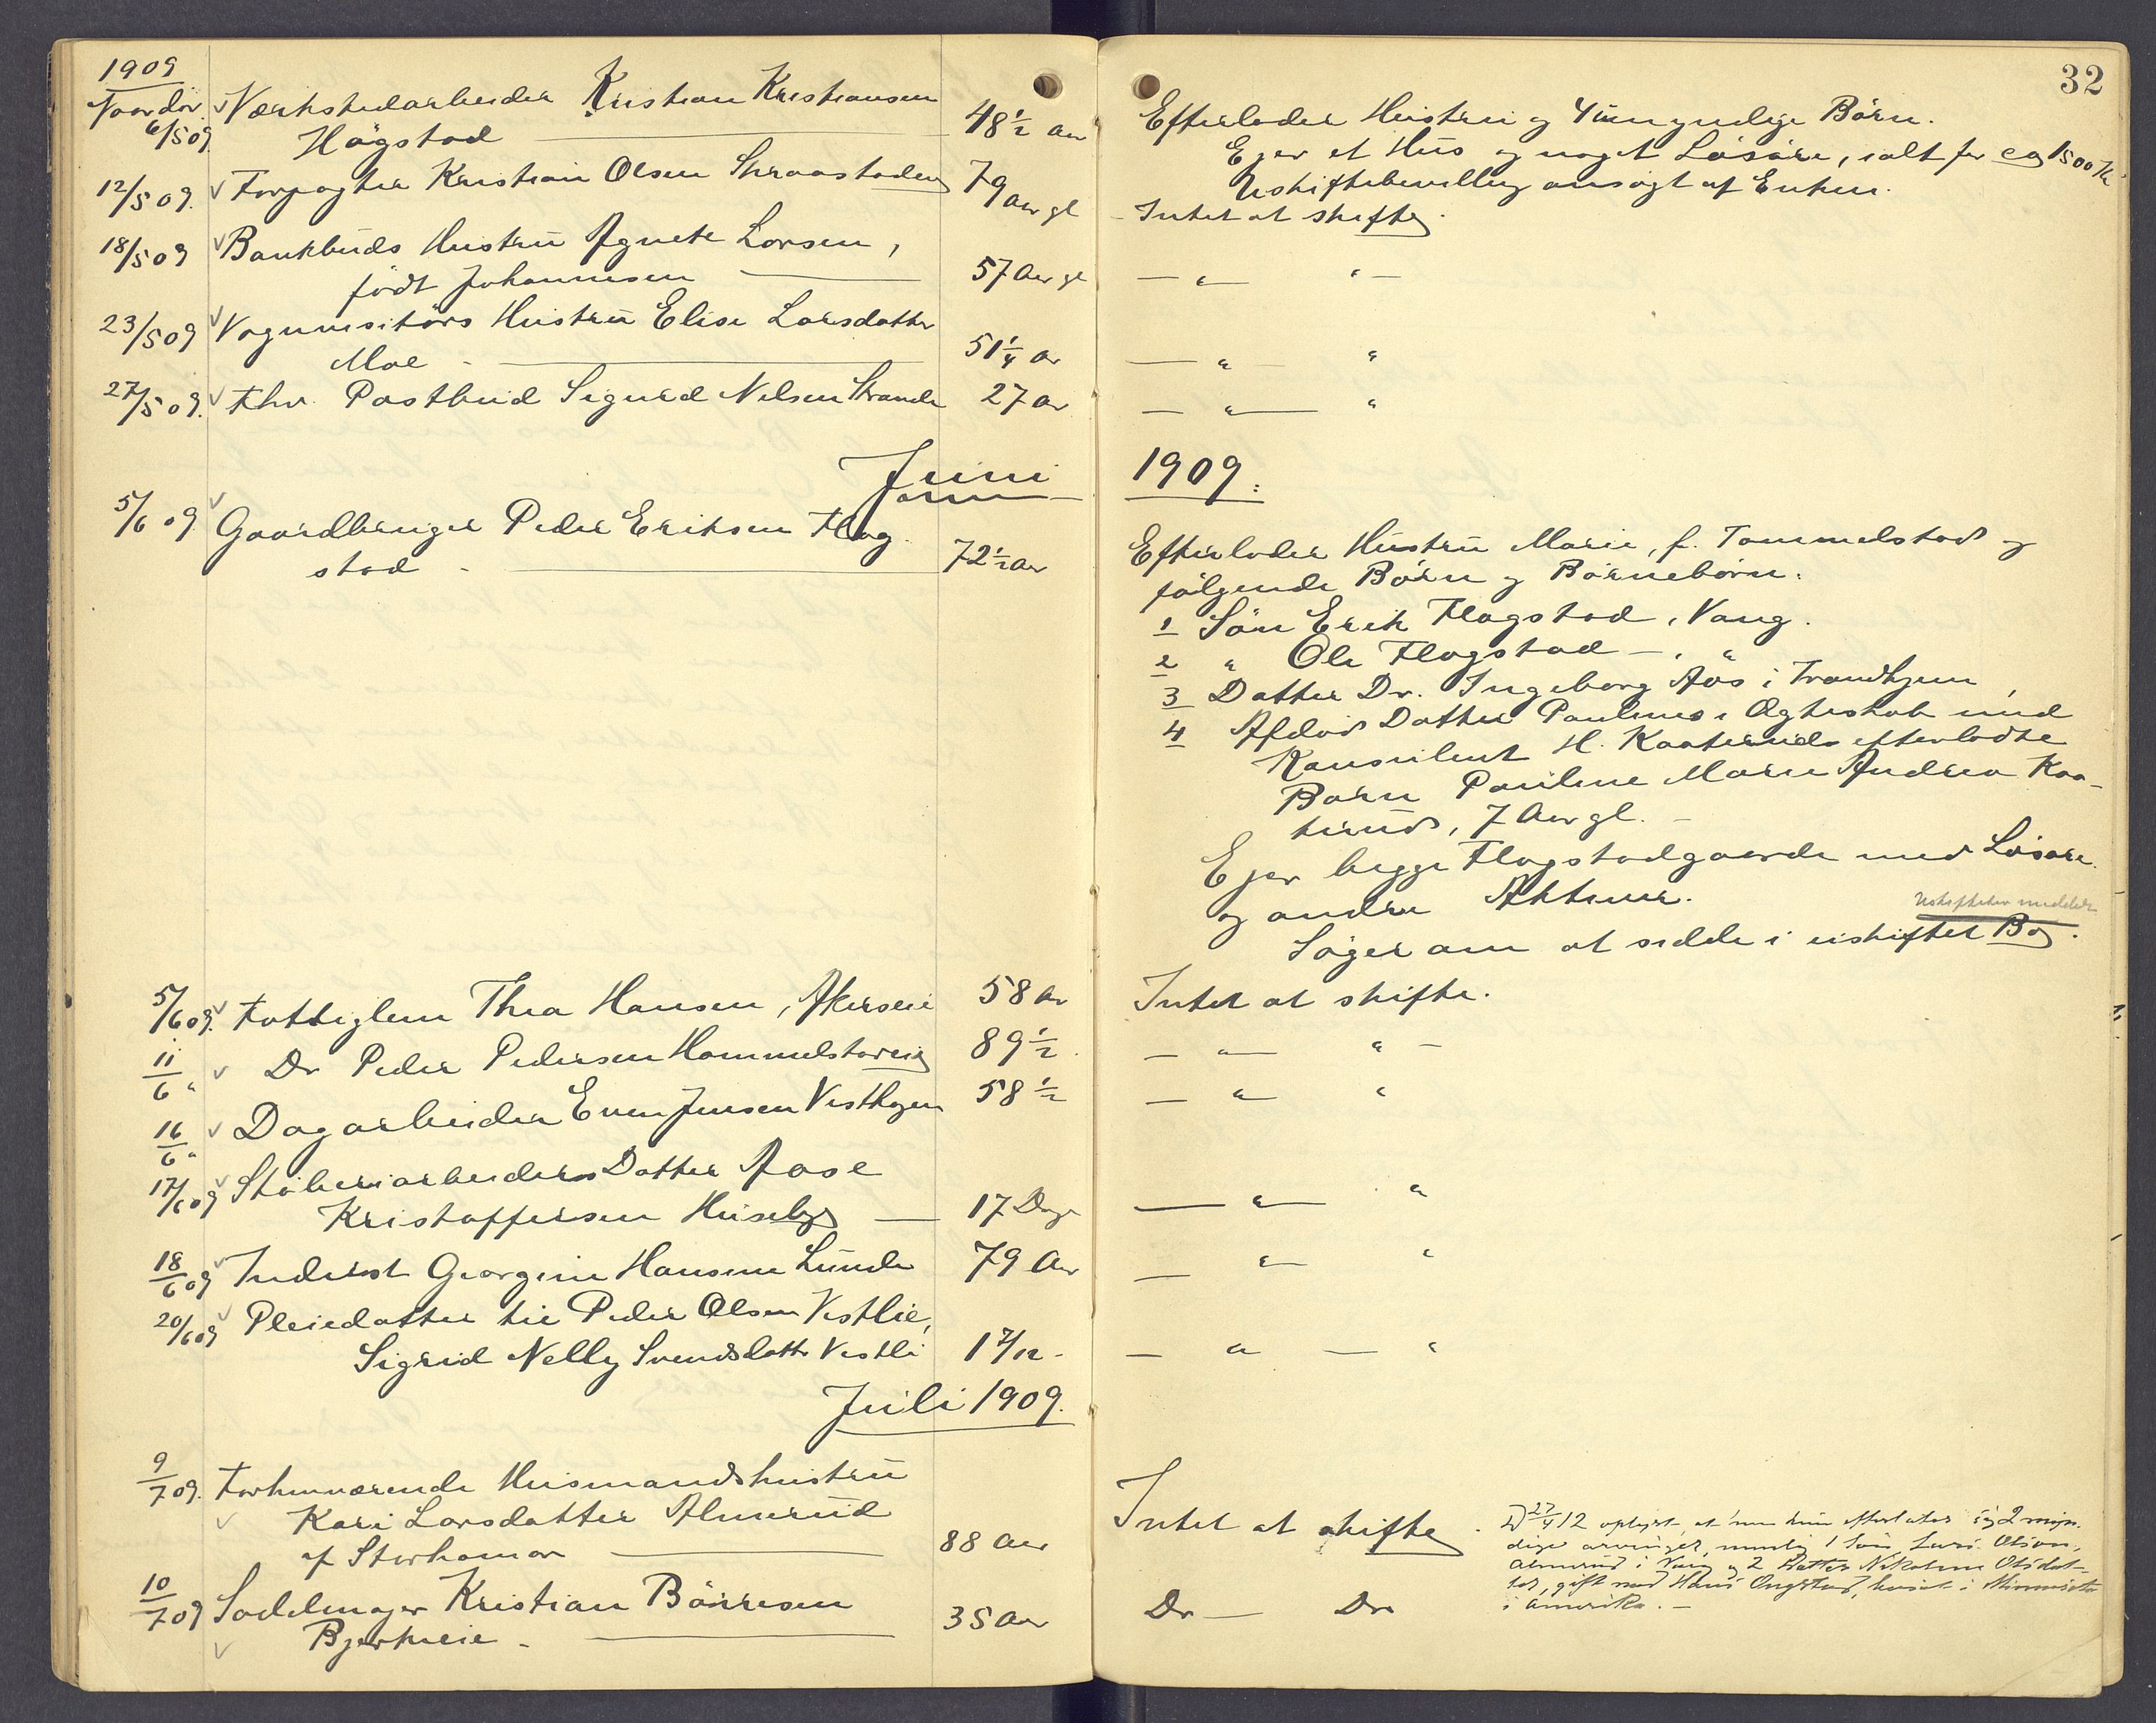 32
1909
6/5 09 Værkstedarbeider Kristian Kristiansen
Högstad 48½ aar
Efterlader Hustru og 4 umyndige Börn.
Ejer et Hus og noget Lösöre, ialt for ca 1500 Kr
Uskiftebevilling ansögt af Enken.
12/5 09. Forpagter Kristian Olsen 79 aar gl
Intet at skifte.
18/5 09 Bankbuds Hustru Agnete Larsen,
födt Johannesen 57 Aar gl
— " " —
23/5 09 Vognvisitörs Hustru Elise Larsdatter
Moe - 51¼ ar
— " "
27/5 09. Fhv. Postbud Sigurd Nilsen 27 ar
— " "
Juni 1909.
5/6 09 Gaardbruger Peder Eriksen Flag-
stad - 72½ aar
Efterlader Hustru Marie, f. Tommelstad og
fölgende Börn og Börnebörn:
1 Sön Erik Flagstad, Vang.
2 " Ole Flagstad — "
3 Datter Dr. Ingeborg Aas i Trondhjem,
4 Afdöd Datter Paulines i Ægteskab med
Konsulent H. Kaaterud efterladte
Barn Pauline Marie Andrea Kaa-
terud, 7 Aar gl. -
Ejer begge Flagstadgaarde med Lösöre
og andre Aktiver.
Uskiftebev meddelt
Söger om at sidde i uskiftet Bo.
5/6 09. Fattiglem Thea Hansen, 58 ar
Intet at skifte.
11/6 " Do Peder Pedersen 89½
— " " —
16/6 " Dagarbeider Even Jensen 58½
— " "
17/6 09 Stöberiarbeiders Datter Aase
Kristoffersen Huseby 17 Dage
— " "
18/6 09 Inderst Georgine Hansen Lunde 79 Aar
— " "
20/6 09 Pleiedatter til Peder Olsen Vestlie,
Sigrid Nelly Svendsdatter Vestli 1 7/12 -
— " — "
Juli 1909.
9/7 09. Forhenværende Husmandshustru
Kari Larsdatter Almerud
af Storhamar 88 aar
Intet at skifte.
27/4 12 oplyst, at hun efterlater sig 2 myn-
dige arvinger, nemlig 1 Sön Lars Olsen,
Almerud i Vang og 2 Datter Nikoline Olsdat-
ter, gift med Hans Ougstad, bosat i
i Amerika. -
10/7 09 Sadelmager Kristian Börresen
Bjerkeeie - 35 aar
Do — Do